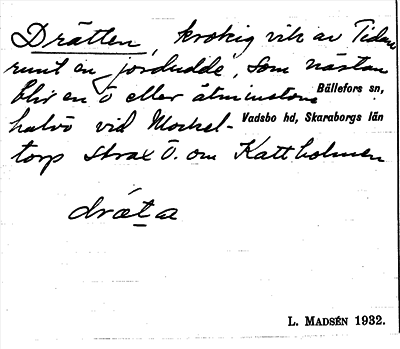 Drätten, krokig vik av Tidan
runt en jordudde, som nästan
blir en ö eller åtminstone Bällefors sn,
halvö vid Mockel- Vadsbo hd, Skaraborgs län
torp strax Ö. om Kattholmen
dráta
L. MADSÉN 1932.